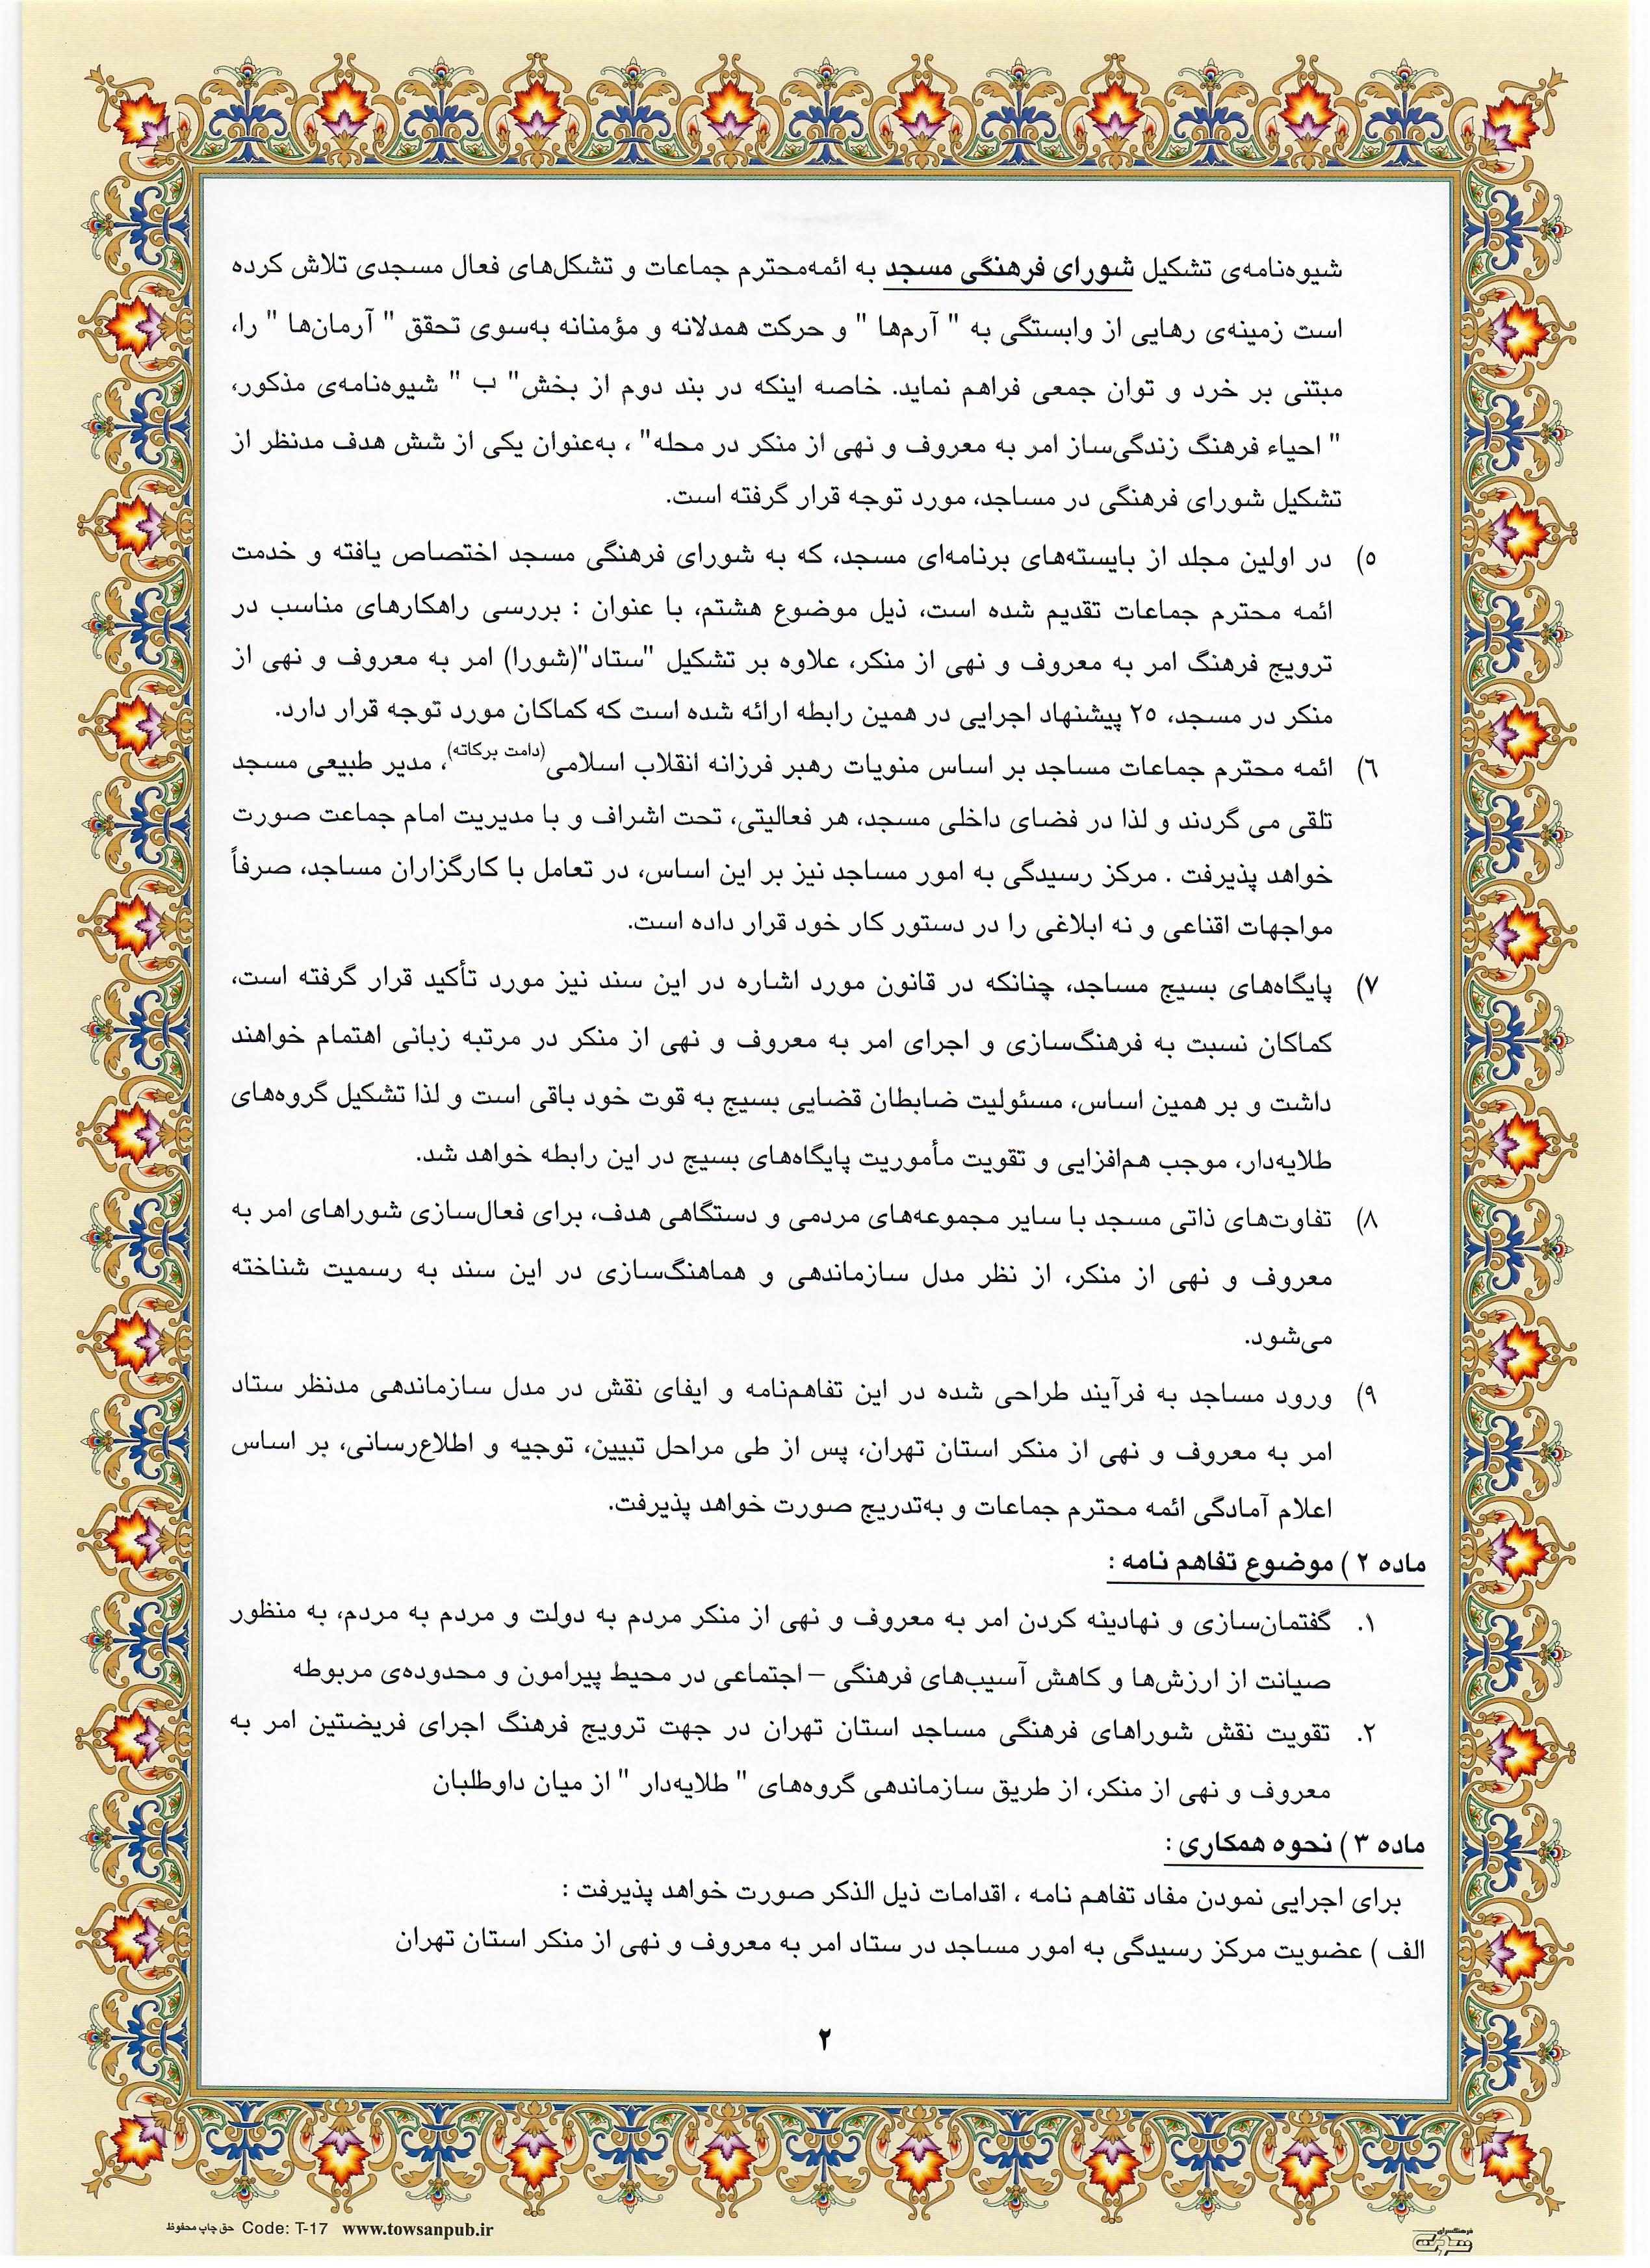 شیوه‌نامه‌ی تشکیل شورای فرهنگی مسجد به ائمه‌محترم جماعات و تشکل‌های فعال مسجدی تلاش کرده
است زمینه‌ی رهایی از وابستگی به " آرم‌ها " و حرکت همدلانه و مؤمنانه به‌سوی تحقق " آرمان‌ها " را،
مبتنی بر خرد و توان جمعی فراهم نماید. خاصه اینکه در بند دوم از بخش" ب " شیوه‌نامه‌ی مذکور،
" احیاء فرهنگ زندگی‌ساز امر به معروف و نهی از منکر در محله" ، به‌عنوان یکی از شش هدف مدنظر از
تشکیل شورای فرهنگی در مساجد، مورد توجه قرار گرفته است.
۵) در اولین مجلد از بایسته‌های برنامه‌ای مسجد، که به شورای فرهنگی مسجد اختصاص یافته و خدمت
ائمه محترم جماعات تقدیم شده است، ذیل موضوع هشتم، با عنوان : بررسی راهکارهای مناسب در
ترویج فرهنگ امر به معروف و نهی از منکر، علاوه بر تشکیل "ستاد"(شورا) امر به معروف و نهی از
منکر در مسجد، ۲۵ پیشنهاد اجرایی در همین رابطه ارائه شده است که کماکان مورد توجه قرار دارد.
۶) ائمه محترم جماعات مساجد بر اساس منویات رهبر فرزانه انقلاب اسلامی(دامت برکاته)، مدیر طبیعی مسجد
تلقی می گردند و لذا در فضای داخلی مسجد، هر فعالیتی، تحت اشراف و با مدیریت امام جماعت صورت
خواهد پذیرفت . مرکز رسیدگی به امور مساجد نیز بر این اساس، در تعامل با کارگزاران مساجد، صرفاً
مواجهات اقناعی و نه ابلاغی را در دستور کار خود قرار داده است.
۷) پایگاه‌های بسیج مساجد، چنانکه در قانون مورد اشاره در این سند نیز مورد تأکید قرار گرفته است،
کماکان نسبت به فرهنگ‌سازی و اجرای امر به معروف و نهی از منکر در مرتبه زبانی اهتمام خواهند
داشت و بر همین اساس، مسئولیت ضابطان قضایی بسیج به قوت خود باقی است و لذا تشکیل گروه‌های
طلایه‌دار، موجب هم‌افزایی و تقویت مأموریت پایگاه‌های بسیج در این رابطه خواهد شد.
۸) تفاوت‌های ذاتی مسجد با سایر مجموعه‌های مردمی و دستگاهی هدف، برای فعال‌سازی شوراهای امر به
معروف و نهی از منکر، از نظر مدل سازماندهی و هماهنگ‌سازی در این سند به رسمیت شناخته
می‌شود.
۹) ورود مساجد به فرآیند طراحی شده در این تفاهم‌نامه و ایفای نقش در مدل سازماندهی مدنظر ستاد
امر به معروف و نهی از منکر استان تهران، پس از طی مراحل تبیین، توجیه و اطلاع‌رسانی، بر اساس
اعلام آمادگی ائمه محترم جماعات و به‌تدریج صورت خواهد پذیرفت.
ماده ۲ ) موضوع تفاهم نامه :
۱. گفتمان‌سازی و نهادینه کردن امر به معروف و نهی از منکر مردم به دولت و مردم به مردم، به منظور
صیانت از ارزش‌ها و کاهش آسیب‌های فرهنگی – اجتماعی در محیط پیرامون و محدوده‌ی مربوطه
۲. تقویت نقش شوراهای فرهنگی مساجد استان تهران در جهت ترویج فرهنگ اجرای فریضتین امر به
معروف و نهی از منکر، از طریق سازماندهی گروه‌های " طلایه‌دار " از میان داوطلبان
ماده ۳ ) نحوه همکاری :
برای اجرایی نمودن مفاد تفاهم نامه ، اقدامات ذیل الذکر صورت خواهد پذیرفت :
الف ) عضویت مرکز رسیدگی به امور مساجد در ستاد امر به معروف و نهی از منکر استان تهران
۲
حق چاپ محفوظ Code: T-17 www.towsanpub.ir